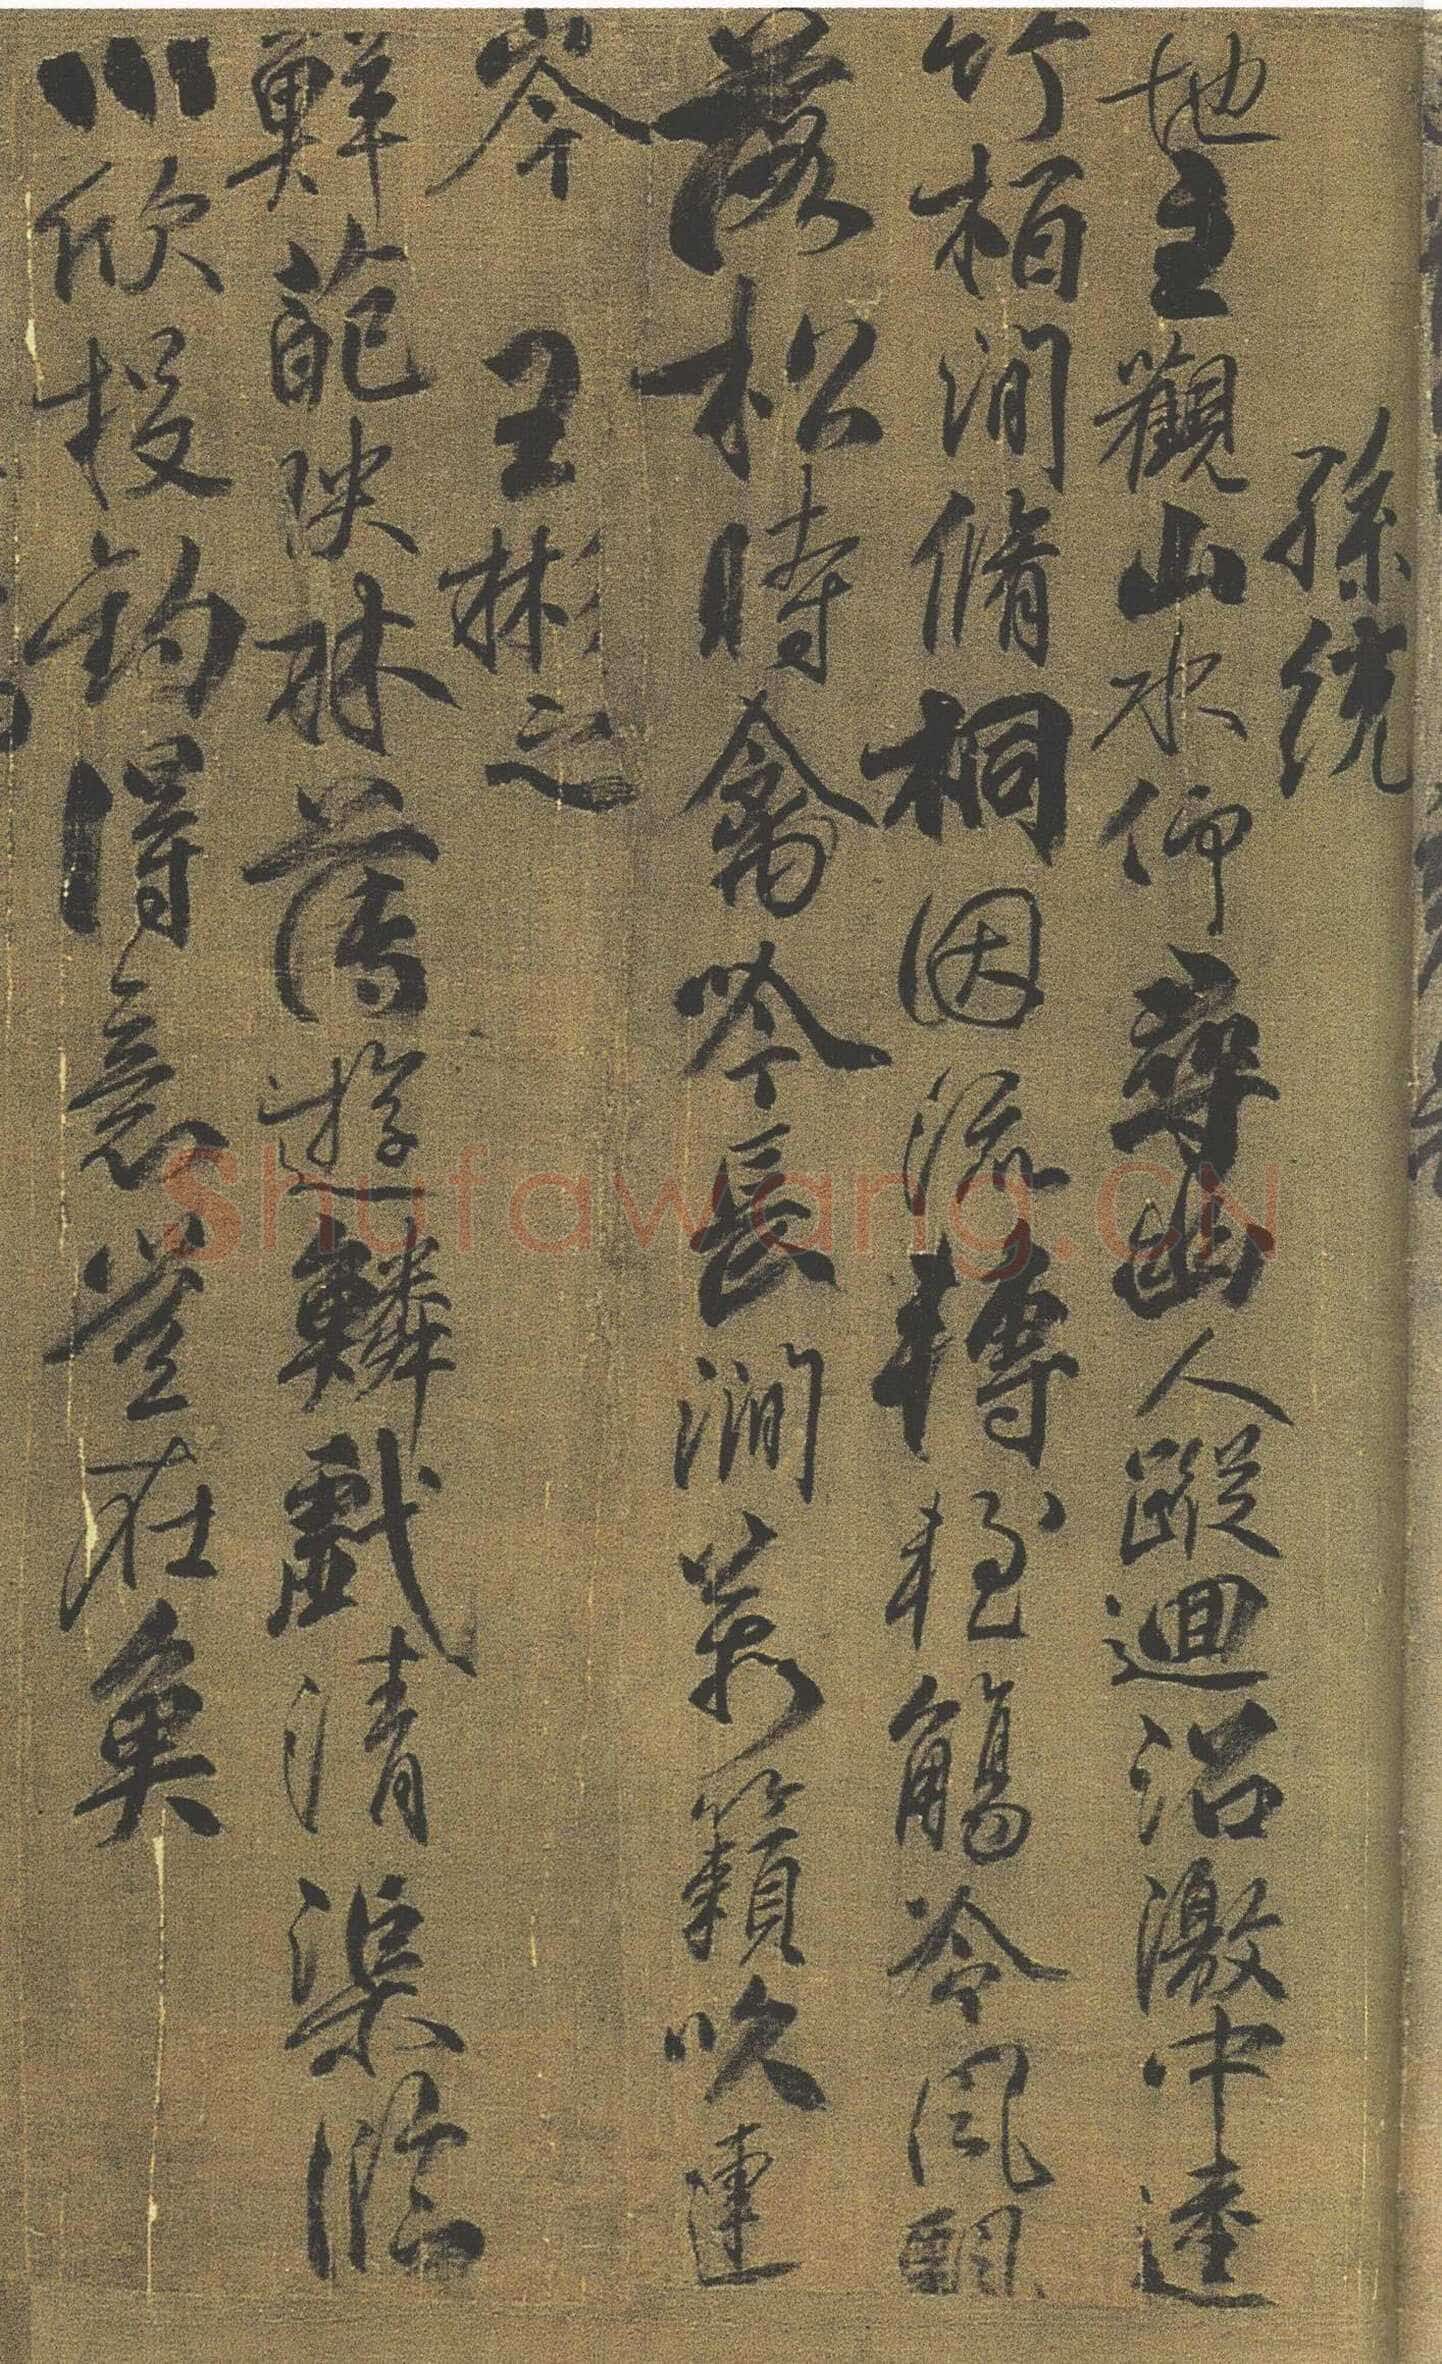 孫統
地主觀山水仰尋幽人蹤迴沼激中逵
竹柏澗脩桐因流轉輕觴冷風飄
落松時禽吟長澗萬籟吹連
岑 王彬之
鮮葩映林薄遊鱗戲清渠臨
川欣投釣得意豈在魚
Shufawang.CN